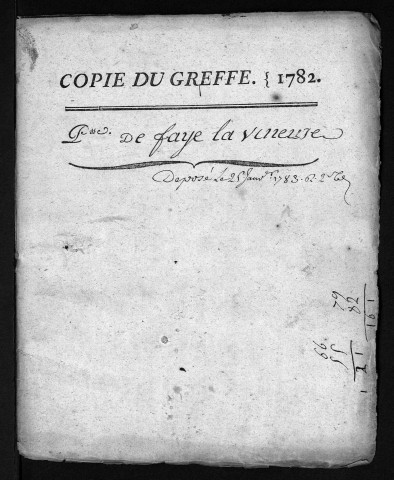 COPIE DU GREFFE. { 1782.
De faye la vineuse
Deposé Le 25 Janv.er 1783.
79
82
161
66
55
121